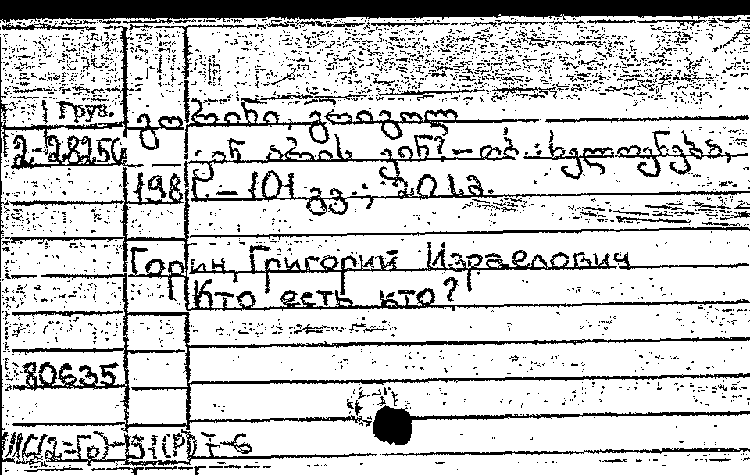 Груз. გორინი, გრიგოლ
2-28250 ვინ არის ვინ? – თბ.: ხელოვნება,
1981. – 101 გვ.; 20 სმ.
Горин, Григорий Израелович
Кто есть кто?
80635
Ш6(2=Гр)-91(Р)7-6